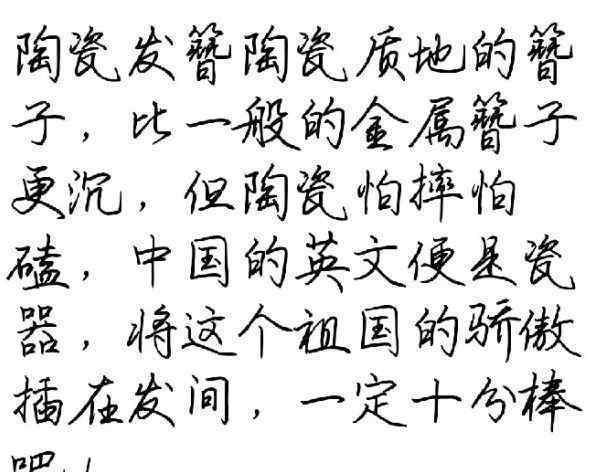 陶瓷发簪陶瓷质地的簪
子，比一般的金属簪子
更沉，但陶瓷怕摔怕
磕，中国的英文便是瓷
器，将这个祖国的骄傲
插在发间，一定十分棒
吧！